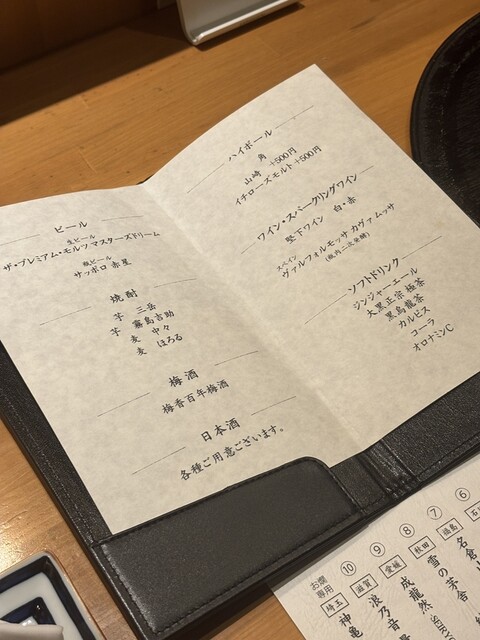 ビール
生ビール
ザ・プレミアム・モルツ マスターズドリーム
瓶ビール
サッポロ 赤星
焼酎
芋 三岳
芋 霧島吉助
麦 中々
麦 ほろる
梅酒
梅香百年梅酒
日本酒
各種ご用意ございます。
ハイボール
角
山崎 +500円
イチローズモルト +500円
ワイン・スパークリングワイン
堅下ワイン 白・赤
スペイン
ヴァルフォルモッサ カヴァ ムッサ
(瓶内二次発酵)
ソフトドリンク
ジンジャーエール
大黒正宗 極茶
黒烏龍茶
カルピス
コーラ
オロナミンC
⑥
⑦ 福島
⑧ 秋田 雪の茅舎
⑨ 愛媛 成龍然
⑩ 滋賀 浪乃音
お燗専用 埼玉 神亀